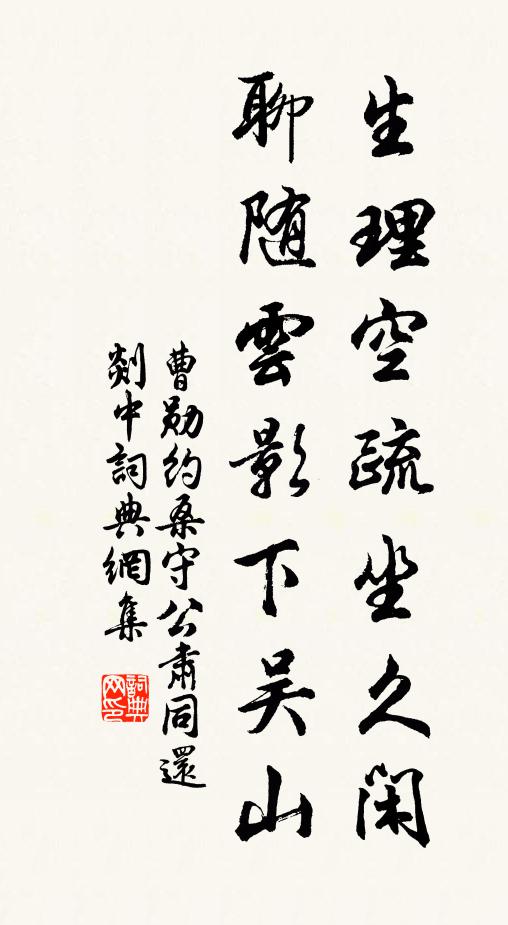 生理空疏坐久閑
聊随雲影下吴山
曹勛約桑守公肅同還
剡中詞典網集
詞典
网印